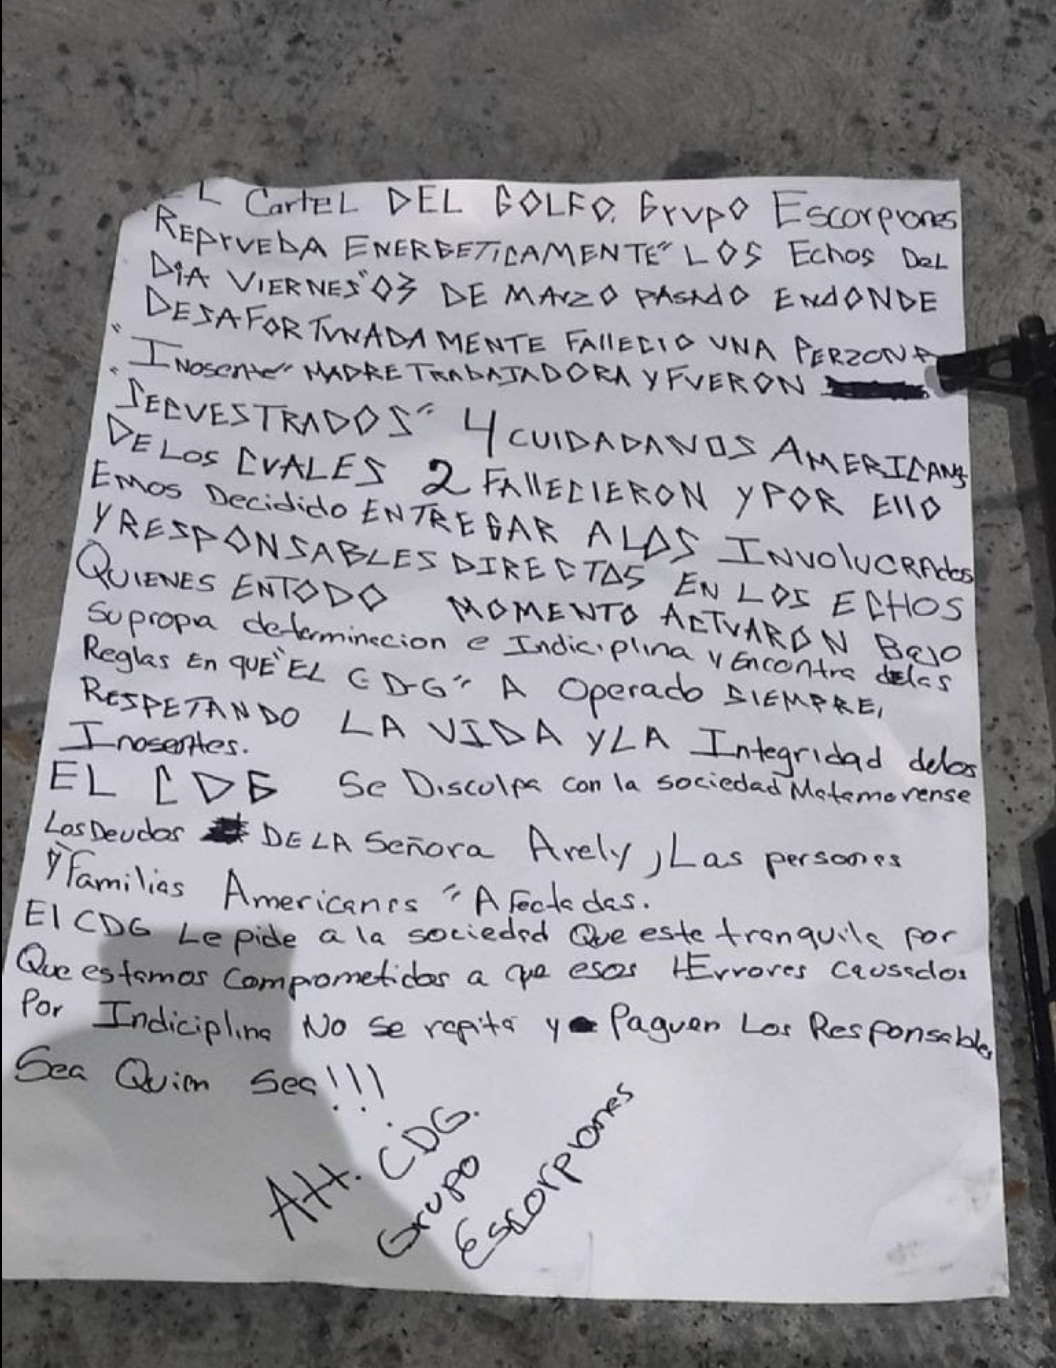 EL CarteL DEL GOLFO, Grupo Escorpiones
REPrUEbA ENERGETICAMENTE" LOS Echos DEL
DiA VIERNES"03 DE MArZO PASADO ENdONDE
DESAFORTUNADAMENTE FAllECIO UNA PERZONA
"INosente" MADRE TRAbAJADORA Y FUERON
"SECUESTRADOS" 4 CUIDADANOS AMERICANS
DE LOS CUALES 2 FAllECIERON Y POR EllO
EMOS Decidido ENTREGAR A LOS INVOLUCRAdos
Y RESPONSABLES DIRECTOS EN LOS ECHOS
QUIENES ENTODO MOMENTO ACTUARON BaJO
Su propia determinacion e Indiciplina y Encontra delas
Reglas En quE "EL CDG" A Operado SIEMPRE,
RESPETANDO LA VIDA Y LA Integridad delos
Inosentes.
EL CDG Se Disculpa con la sociedad Matamorense
Los Deudos DE LA Señora Arely, Las personas
Y Familias Americanas "Afectadas.
El CDG Le pide a la sociedad Que este tranquila por
Que estamos comprometidos a que esos Errores causados
Por Indiciplina No se repita y Paguen Los Responsables
Sea Quien sea!!!
Att. CDG.
Grupo
Escorpiones